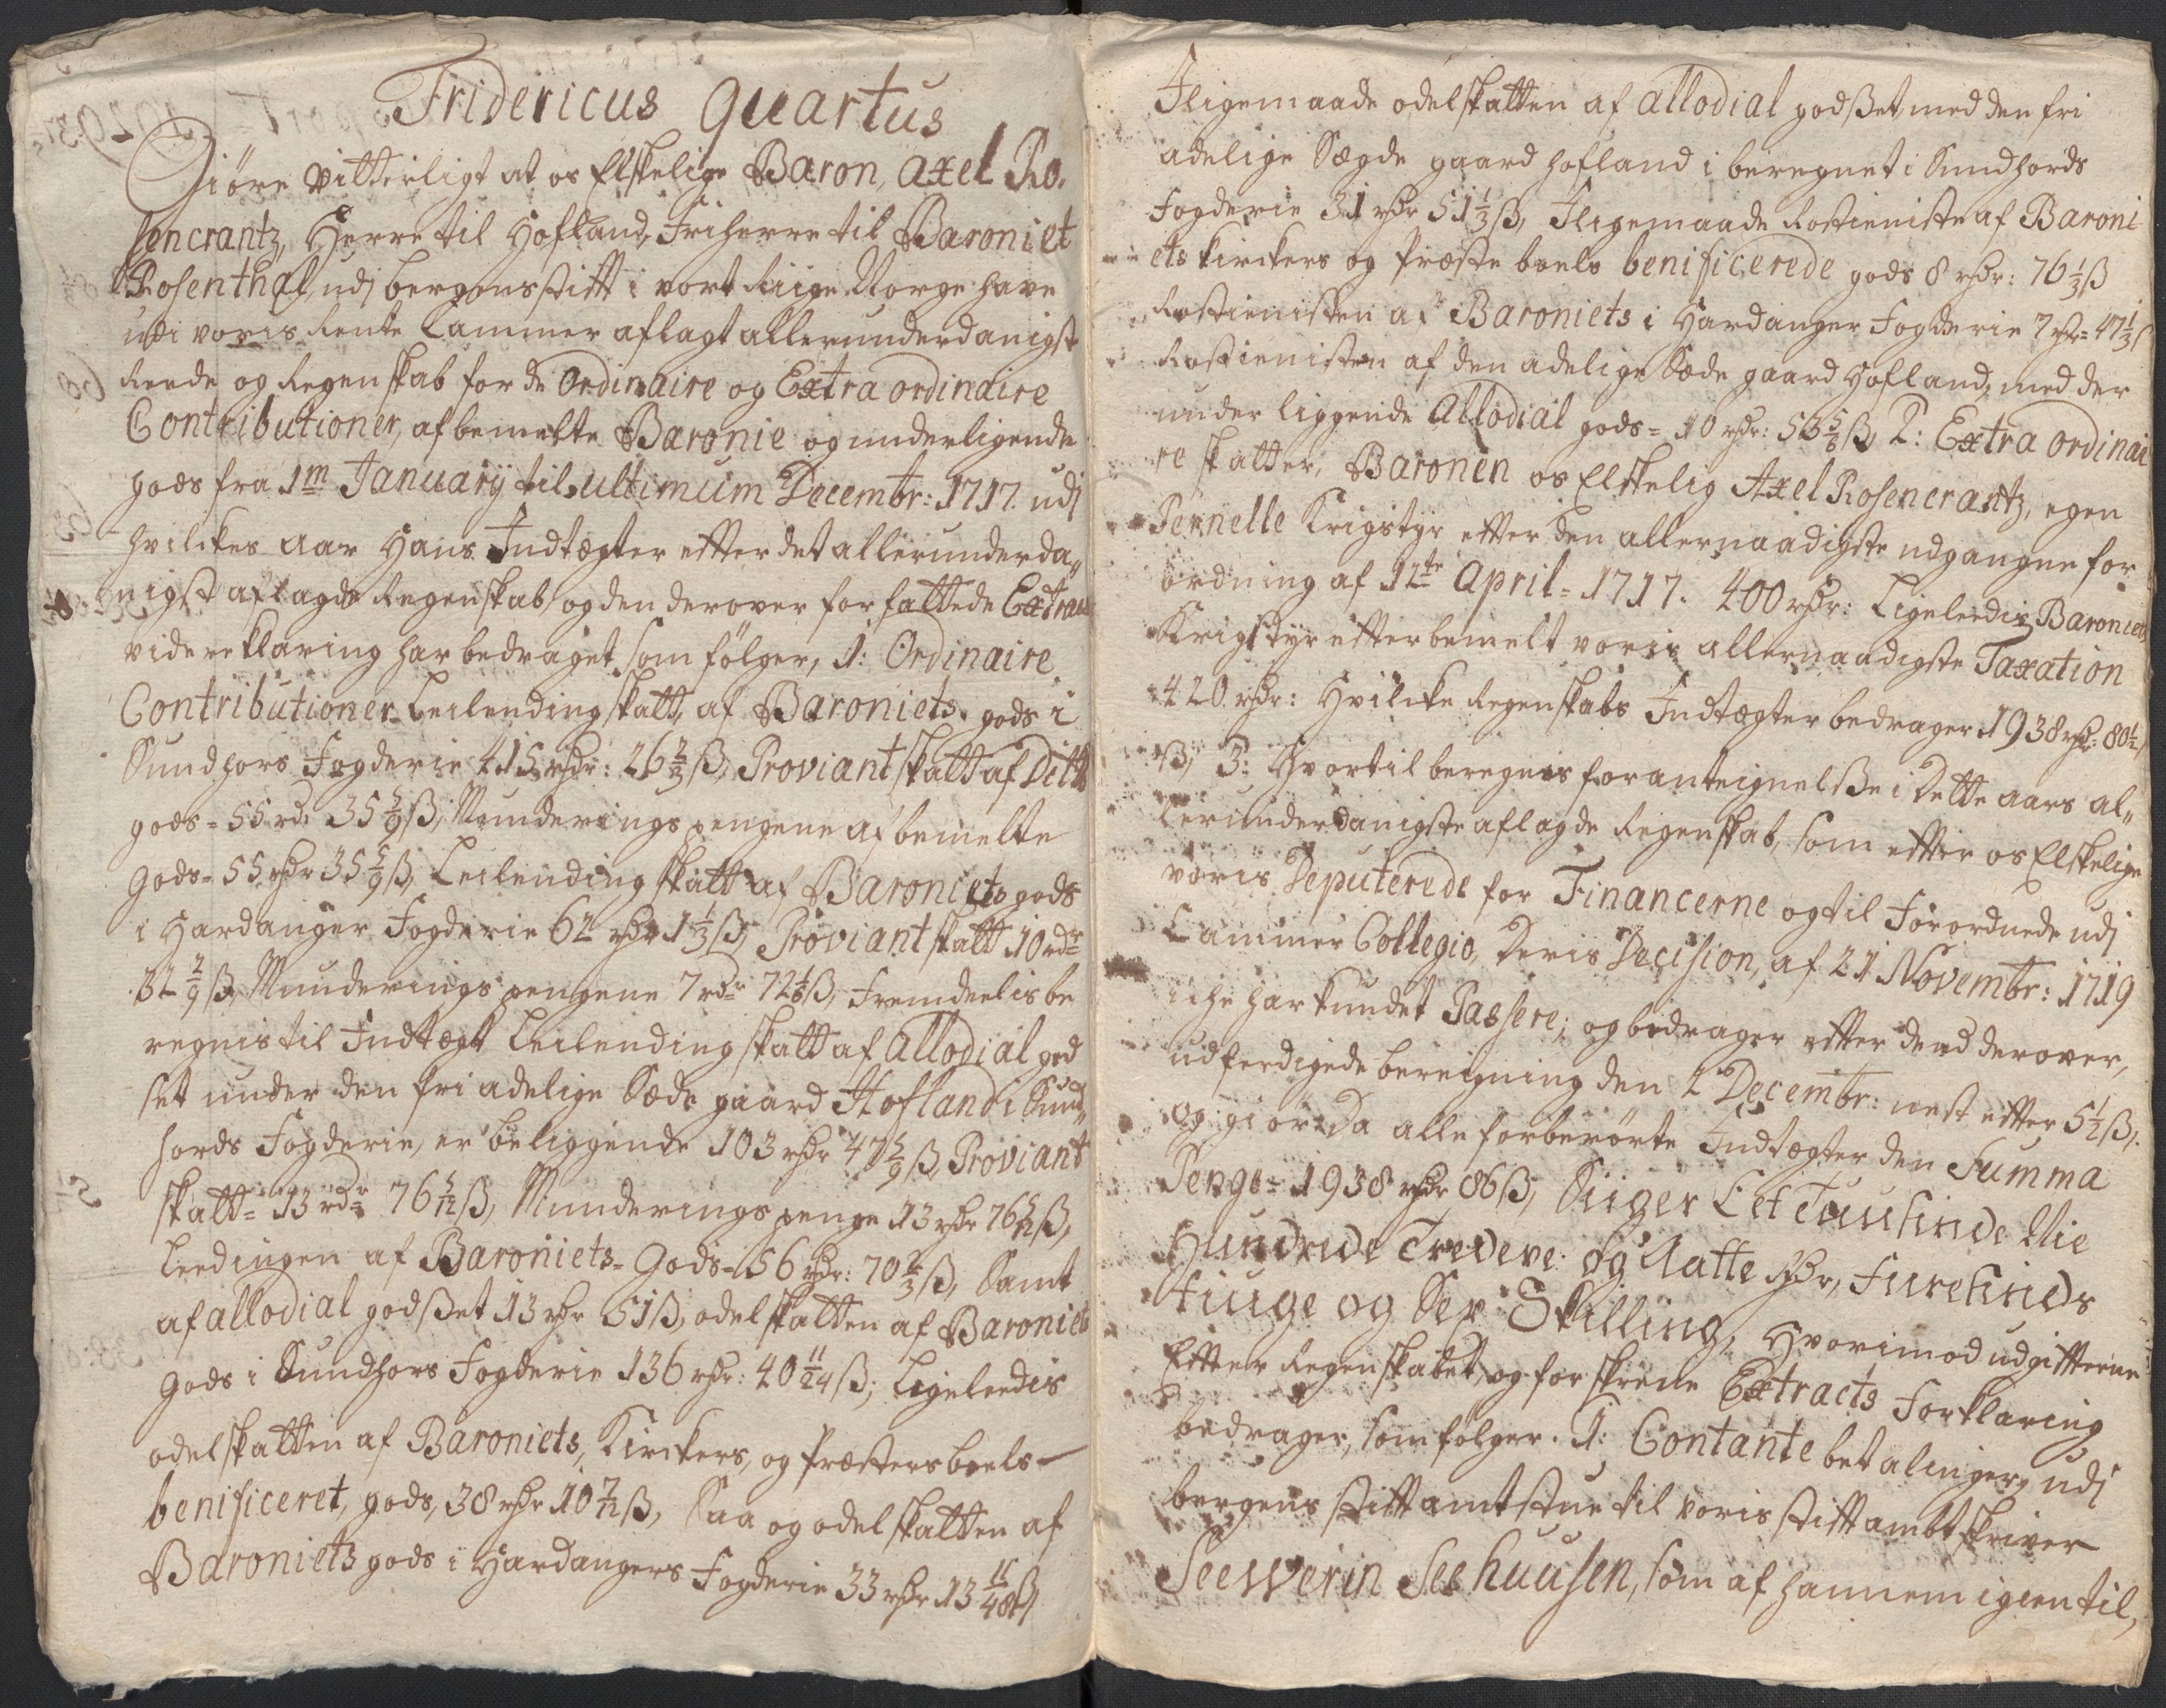 Fridericus Quartus
Giöre Vitterligt at os Elskelige Baron, Axel Ro,
sencrantz, Herre til Hofland, Friherre til Baroniet
Rosenthal, udj bergensstifft i vort Riige Norge have
udi voris Rente Cammer aflagt allerunderdanigst
Reede og Regenskab for de Ordinaire og Extra ordinaire
Contributioner, af bemelte Baronie og underligende
gods fra 1m January til ultimum Decembr: 1717. udj
hvilckes aar Hans Indtægter efter det allerunderda„
nigst aflagde Regenskab, og den derover forfattede Extract
videre klaring har bedraget som følger, 1: Ordinaire
Contributioner Leilending skatt, af Baroniets gods i
Sundhors Fogderie 415 rdr: 26 2/3 ß, Proviant skatt af Ditto
gods = 55 rd 35 5/9 ß, Munderings pengene af bemelte
Gods = 55 rdr 35 5/9 ß, Leilending skatt af Baroniets gods
i Hardanger Fogderie 62 rdr 1 1/3 ß, Proviant skatt 10 rdr
32 2/9 ß, Munderings pengene 7 rdr 72 1/6 ß, Fremdeelis be
regnis til Indtægt Leilending skatt af Allodial god
set under den fri adelige Sæde gaard Hofland i Sund„
hords Fogderie, er beliggende 103 rdr 47 5/9 ß, Proviant
skatt = 13 rdr 76 5/12 ß, Munderings penge 13 rdr 76 5/12 ß,
Leedingen af Baroniets = Gods = 56 rdr: 70 2/3 ß, Samt
af allodial godßet 13 rdr 51 ß, odelskatten af Baroniets
Gods i Sundhors Fogderie 136 rdr: 40 11/24 ß; Ligeleedis
odelskatten af Baroniets, Kirckers, og Præstersboels
benificeret, gods, 38 rdr 10 7/12 ß, Saa og odelskatten af
Baroniets gods i Hardangers Fogderie 33 rdr 13 11/48 ß
Iligemaade odelskatten af allodial godßet med den fri
adelige Sægde gaard Hofland i beregnet i Sundhords
Fogderie 31 rdr 51 1/3 ß, Iligemaade Rostieniste af Baroni
ets Kirckers og Præste boels benificerede gods 8 rdr: 76 1/3 ß
Rostienisten af Baroniets i Hardanger Fogderie 7 rdr = 47 1/3 ß
Rostienisten af den adelige Sæde gaard Hofland, med der
under liggende Allodial gods = 10 rdr: 53 5/6 ß, 2: Extra ordinai
re skatter, Baronen os Elskelig Axel Rosencrantz, egen
Pernelle Krigstyr efter den allernaadigste udgangne for
ordning af 12te April = 1717. 400 rdr: Ligeleedis Baroniets
Krigstyr efter bemelt voris allernaadigste Taxation
420 rdr: Hvilcke Regenskabs Indtægter bedrager 1938 rdr: 80 1/2
ß, 3: Hvortil beregnis for anteignelße i dette aars al„
lerunderdanigste aflagde Regenskab, som effter os Elskelige
voris Deputerede for Financerne og til Forordnede udj
Cammer Collegio, Deris Decision, af 21 Novembr: 1719
iche har kundet Passere; og bedrager efter dend derover,
udferdigede bereigning den 2 Decembr: nest efter 5 1/2 ß,
og giør Da alle forberørte Indtægter den Summa
Penge = 1938 rdr 86 ß, Siiger Eet Tuusinde Nie
Hundrede Tredeve og Aatte Rdr, Fiiresinds
tiuge og Sex Skilling, Hvorimod udgiffterne
Efter Regenskabet, og forskrevne Extracts Forklaring
bedrager, som følger. 1: Contante betalinger, udj
bergens stifft amtstue til voris stifftambtskriver
Seeverin Seehuusen, som af hannem igien til,